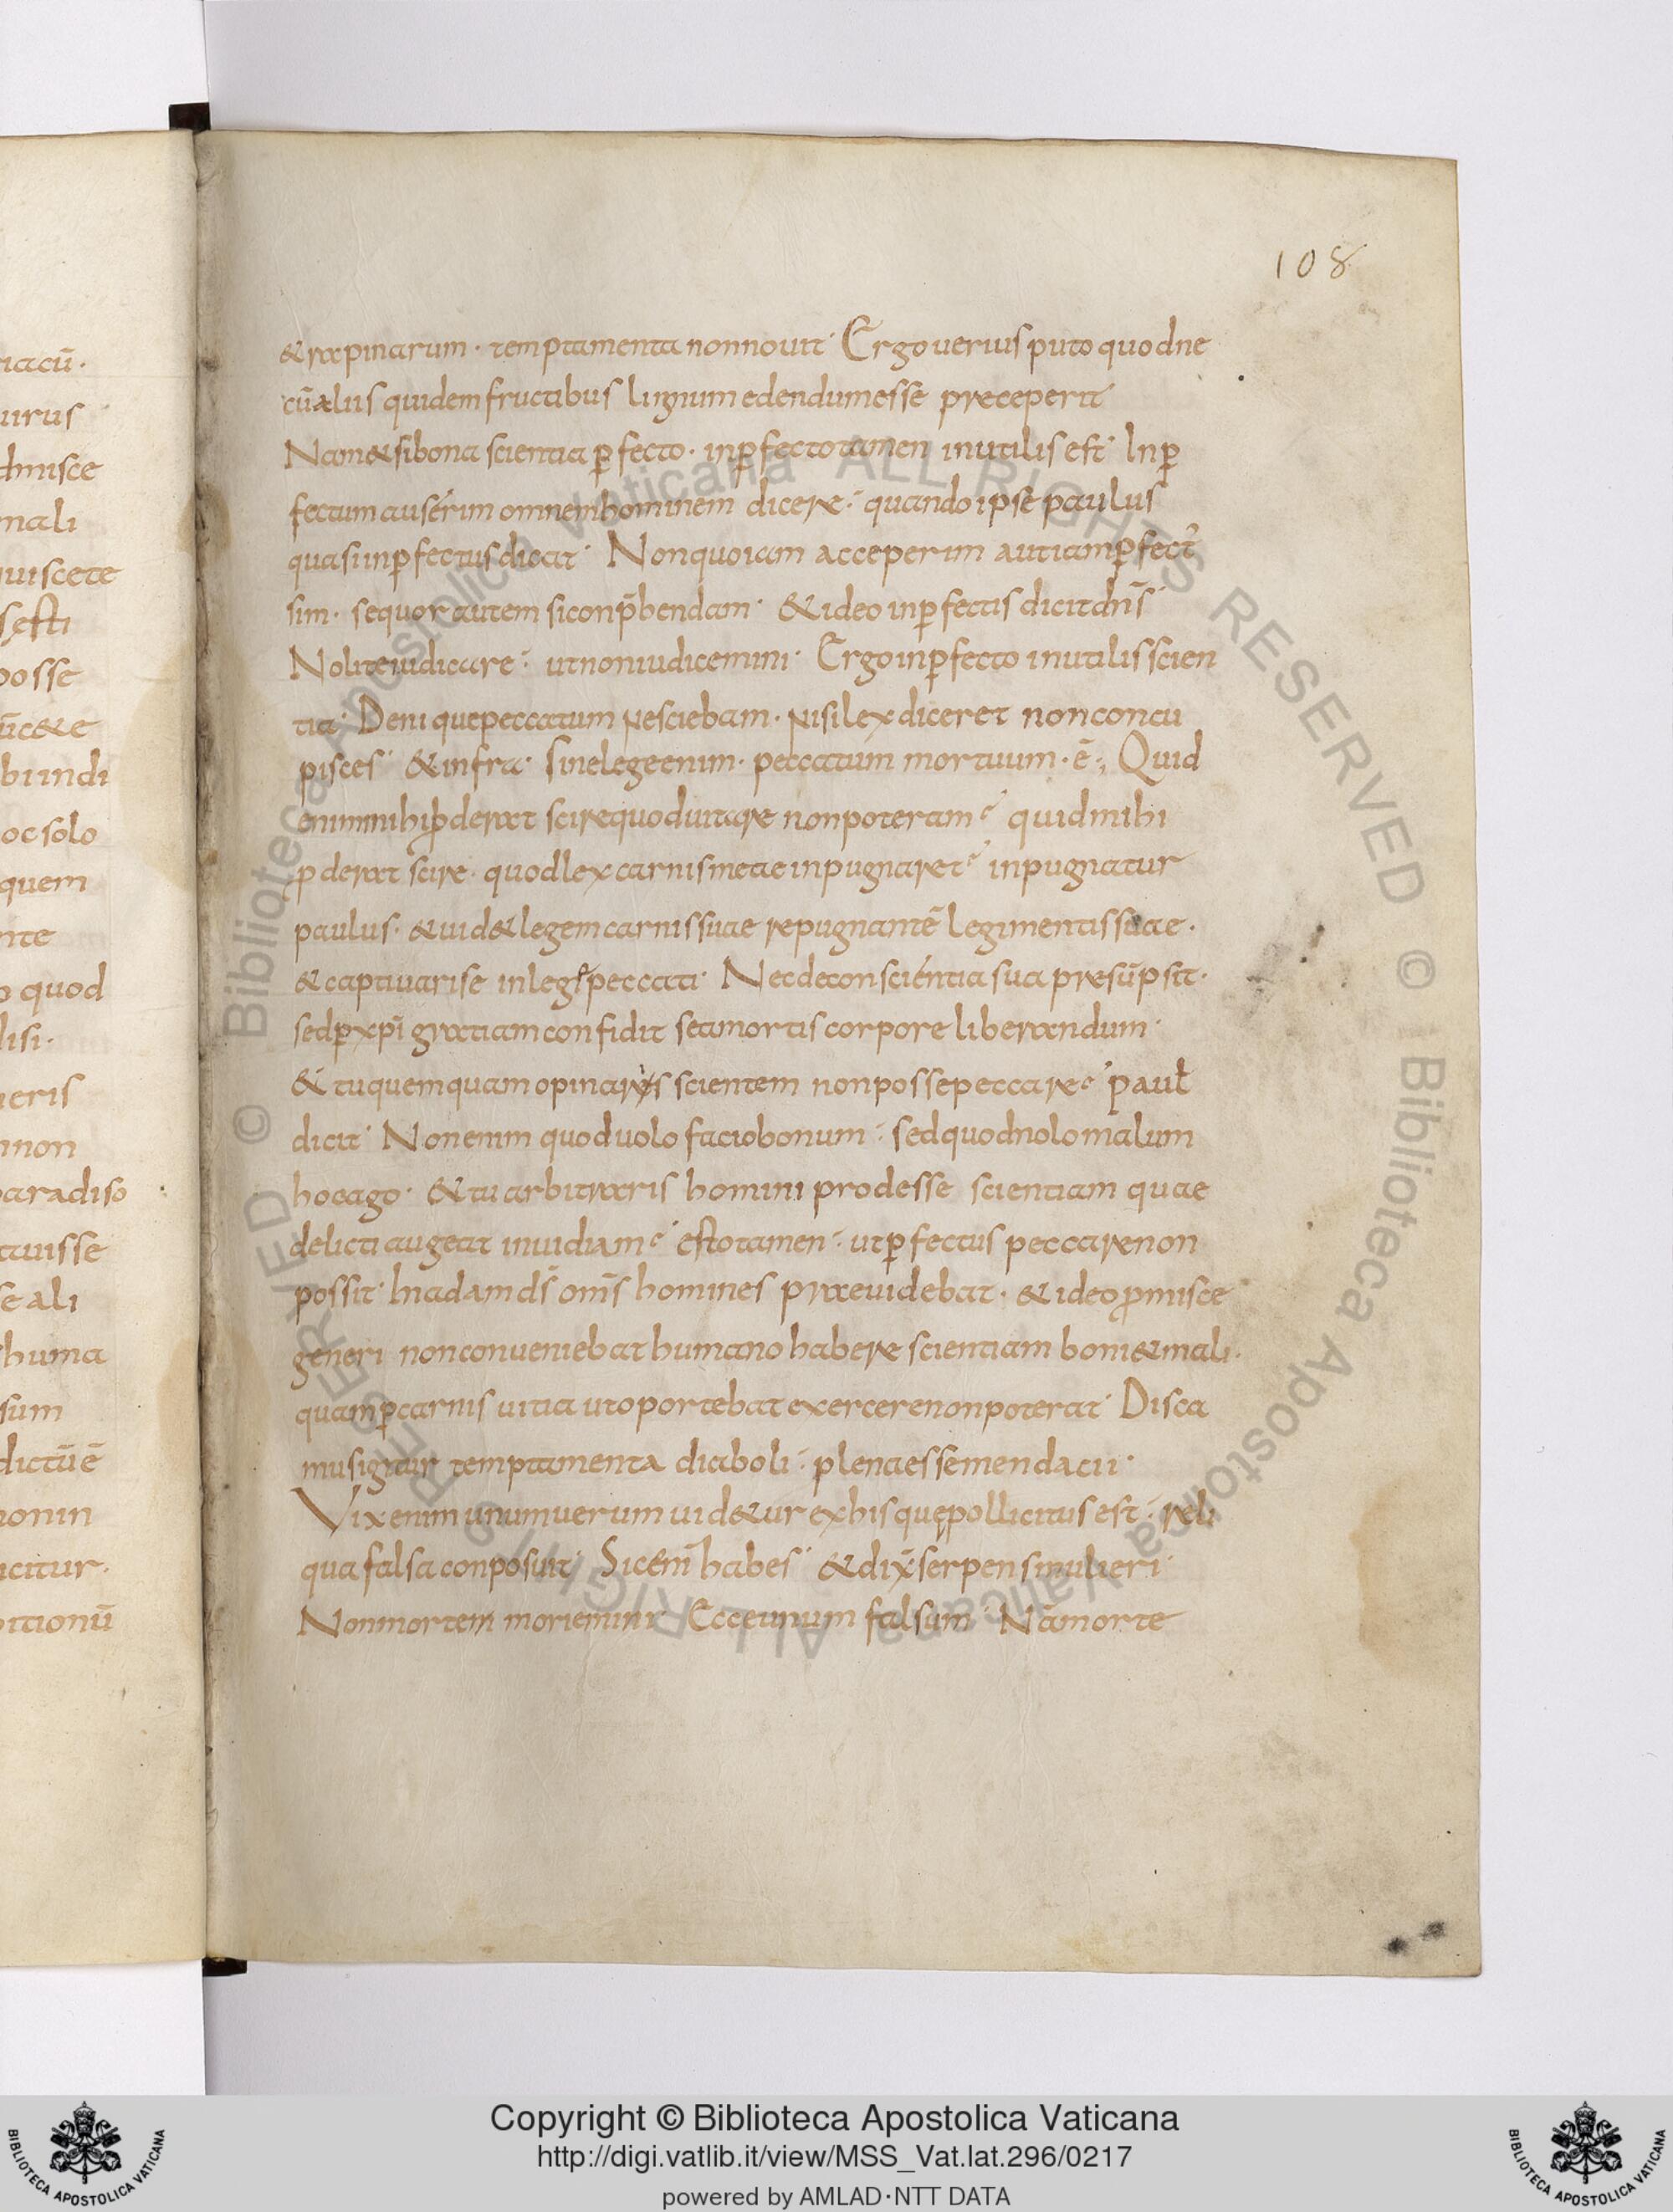 iacū·
uirus
dmisce
mali
uiscete
s,esti
posse
uīc&e
bi indi
oc solo
quem
nte
o quod
lisi·
ieris
non
paradiso
tauisse
se ali
huma
sum
dictū ē
nonin
icitur·
itionū
108
& rapinarum · temptamenta non nouit· Ergo uerius puto quod ne
cū aliis quidem fructibus lignum edendum esse preceperit
Nam & si bona scientia p̱fecto· inp̱fecto tamen inutilis est· Inp̱
fectum auserim omnem hominem dicere· quando ipse paulus
quasi inp̱fectus dicat· Non quo iam acceperim aut iam p̱fect'
sim· sequor autem si conp̄hendam· & ideo inp̱fectis dicit dn̄s
Nolite iudicare· ut non iudicemini· Ergo inp̱fecto inutilis scien
tia· Denique peccatum nesciebam· nisi lex diceret non concu
pisces· & infra· sine lege enim· peccatum mortuum· ē·, Quid
enim mihi ꝓderat scire quod uitare non poteram? quid mihi
ꝓderat scire· quod lex carnis meae inpugnaret? inpugnatur
paulus· & uid& legem carnis suae repugnantē legi mentis suae·
& captiuari se in lege peccati· Nec de conscientia sua presūpsit·
sed p̱ xp̄i gratiam confidit se a mortis corpore liberandum·
& tu quemquam opinaris scientem non posse peccare? paul̄
dicit· Non enim quod uolo facio bonum· sed quod nolo malum
hoc ago· & tu arbitraris homini prodesse scientiam quae
delicti augeat inuidiam? esto tamen· ut p̱fectus peccare non
possit· In adam ds̄ om̄s homines praeuidebat· & ideo ꝓmisce
generi non conueniebat humano habere scientiam boni & mali·
quam p̱ carnis uitia ut oportebat exercere non poterat· Disca
mus igitur temptamenta diaboli· plena esse mendacii·
Vix enim unum uerum uid&ur ex his quę pollicitus est· reli
qua falsa conposuit· Sic enī habes· & dix̄ serpens mulieri·
Non mortem moriemini· Ecce unum falsum· Nā morte
© Biblioteca Apostolica Vaticana ALL RIGHTS RESERVED © Biblioteca Apostolica Vaticana ALL RIGHTS RESERVED
BIBLIOTECA APOSTOLICA VATICANA
Copyright © Biblioteca Apostolica Vaticana
http://digi.vatlib.it/view/MSS_Vat.lat.296/0217
powered by AMLAD·NTT DATA
BIBLIOTECA APOSTOLICA VATICANA